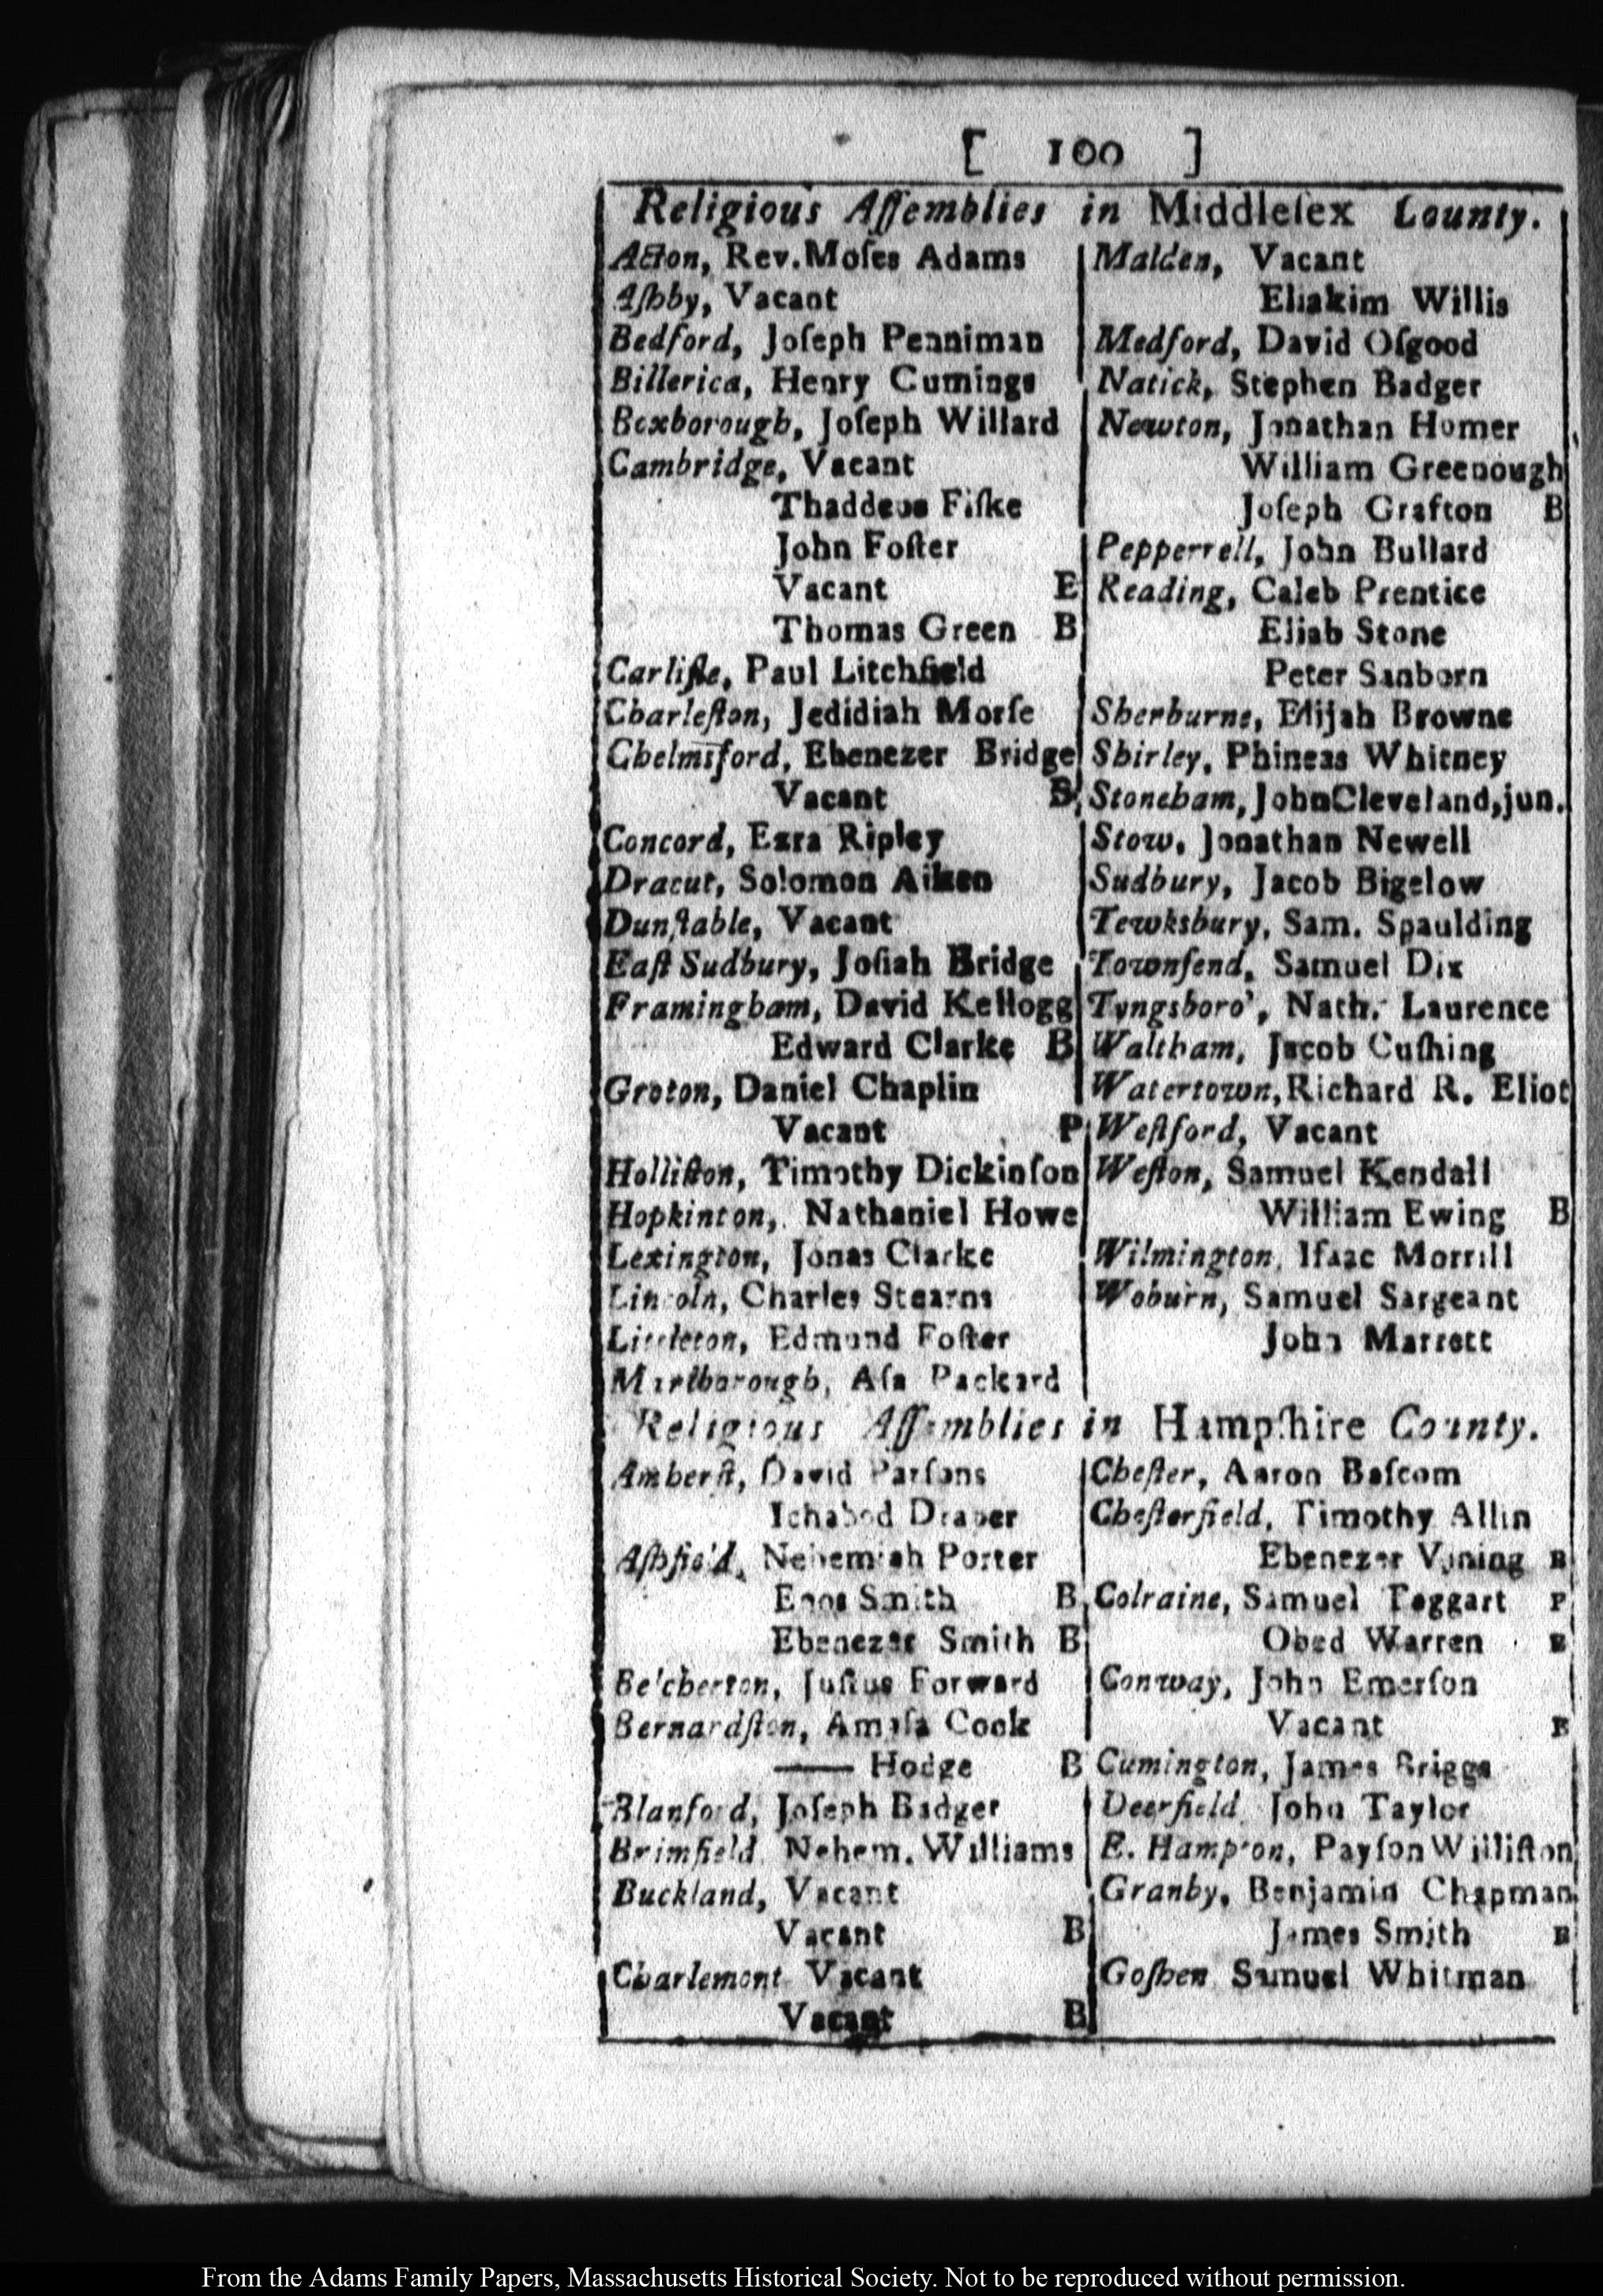 [ 100 ]
Religious Aſſemblies in Middleſex County.
Acton, Rev. Moſes Adams
Aſhby, Vacant
Bedford, Joſeph Penniman
Billerica, Henry Cumings
Boxborough, Joſeph Willard
Cambridge, Vacant
Thaddeus Fiſke
John Foſter
Vacant E
Thomas Green B
Carliſle, Paul Litchfield
Charleſton, Jedidiah Morſe
Chelmsford, Ebenezer Bridge
Vacant B
Concord, Ezra Ripley
Dracut, Solomon Aiken
Dunſtable, Vacant
Eaſt Sudbury, Joſiah Bridge
Framingham, David Kellogg
Edward Clarke B
Groton, Daniel Chaplin
Vacant P
Holliſton, Timothy Dickinſon
Hopkinton, Nathaniel Howe
Lexington, Jonas Clarke
Lincoln, Charles Stearns
Littleton, Edmund Foſter
Marlborough, Aſa Packard
Malden, Vacant
Eliakim Willis
Medford, David Oſgood
Natick, Stephen Badger
Newton, Jonathan Homer
William Greenough
Joſeph Grafton B
Pepperrell, John Bullard
Reading, Caleb Prentice
Eliab Stone
Peter Sanborn
Sherburne, Elijah Browne
Shirley, Phineas Whitney
Stoneham, John Cleveland, jun.
Stow, Jonathan Newell
Sudbury, Jacob Bigelow
Tewksbury, Sam. Spaulding
Townſend, Samuel Dix
Tyngsboro', Nath. Laurence
Waltham, Jacob Cuſhing
Watertown, Richard R. Eliot
Weſtford, Vacant
Weſton, Samuel Kendall
William Ewing B
Wilmington, Iſaac Morrill
Woburn, Samuel Sargeant
John Marrett
Religious Aſſemblies in Hampſhire County.
Amherſt, David Parſons
Ichabod Draper
Aſhfield, Nehemiah Porter
Enos Smith B
Ebenezer Smith B
Belcherton, Juſtus Forward
Bernardſton, Amaſa Cook
—— Hodge B
Blanford, Joſeph Badger
Brimfield, Nehem. Williams
Buckland, Vacant
Vacant B
Charlemont Vacant
Vacant B
Cheſter, Aaron Baſcom
Cheſterfield, Timothy Allin
Ebenezer Vining B
Colraine, Samuel Taggart P
Obed Warren B
Conway, John Emerſon
Vacant B
Cumington, James Briggs
Deerfield, John Taylor
E. Hampton, Payſon Williſton
Granby, Benjamin Chapman
James Smith B
Goſhen Samuel Whitman
From the Adams Family Papers, Massachusetts Historical Society. Not to be reproduced without permission.